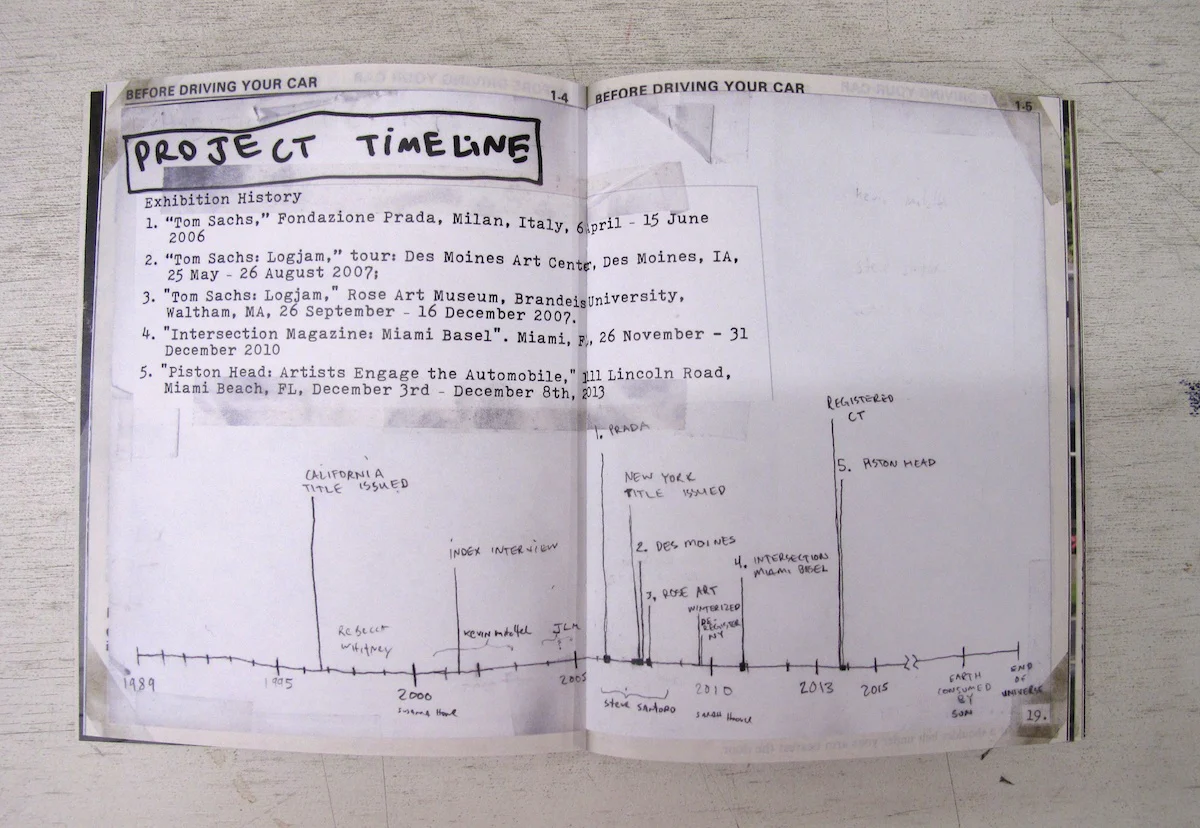 BEFORE DRIVING YOUR CAR
1-4
BEFORE DRIVING YOUR CAR
1-5
PROJECT TIMELINE
Exhibition History
1. “Tom Sachs,” Fondazione Prada, Milan, Italy, 6 April - 15 June
2006
2. “Tom Sachs: Logjam,” tour: Des Moines Art Center, Des Moines, IA,
25 May - 26 August 2007;
3. "Tom Sachs: Logjam," Rose Art Museum, Brandeis University,
Waltham, MA, 26 September - 16 December 2007.
4. "Intersection Magazine: Miami Basel". Miami, F, 26 November - 31
December 2010
5. "Piston Head: Artists Engage the Automobile," 1111 Lincoln Road,
Miami Beach, FL, December 3rd - December 8th, 2013
REGISTERED
CT
1. PRADA
5. PISTON HEAD
CALIFORNIA
TITLE ISSUED
NEW YORK
TITLE ISSUED
INDEX INTERVIEW
2. DES MOINES
4. INTERSECTION
MIAMI BASEL
3. ROSE ART
WINTERIZED
RE-
REGISTER
NY
REBECCA
WHITNEY
KEVIN
JLM
1989
1995
2000
2005
2010
2013
2015
EARTH
CONSUMED
BY
SUN
END
OF
UNIVERSE
STEVE SANTORO
19.